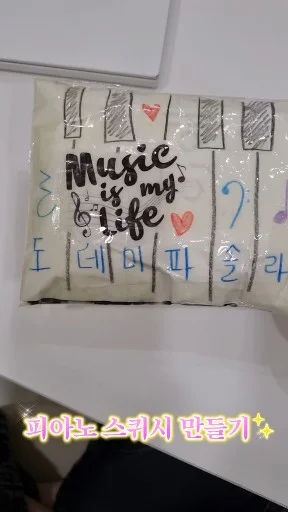 Music
is my
Life
도 데 미 파 솔 라
피아노 스퀴시 만들기